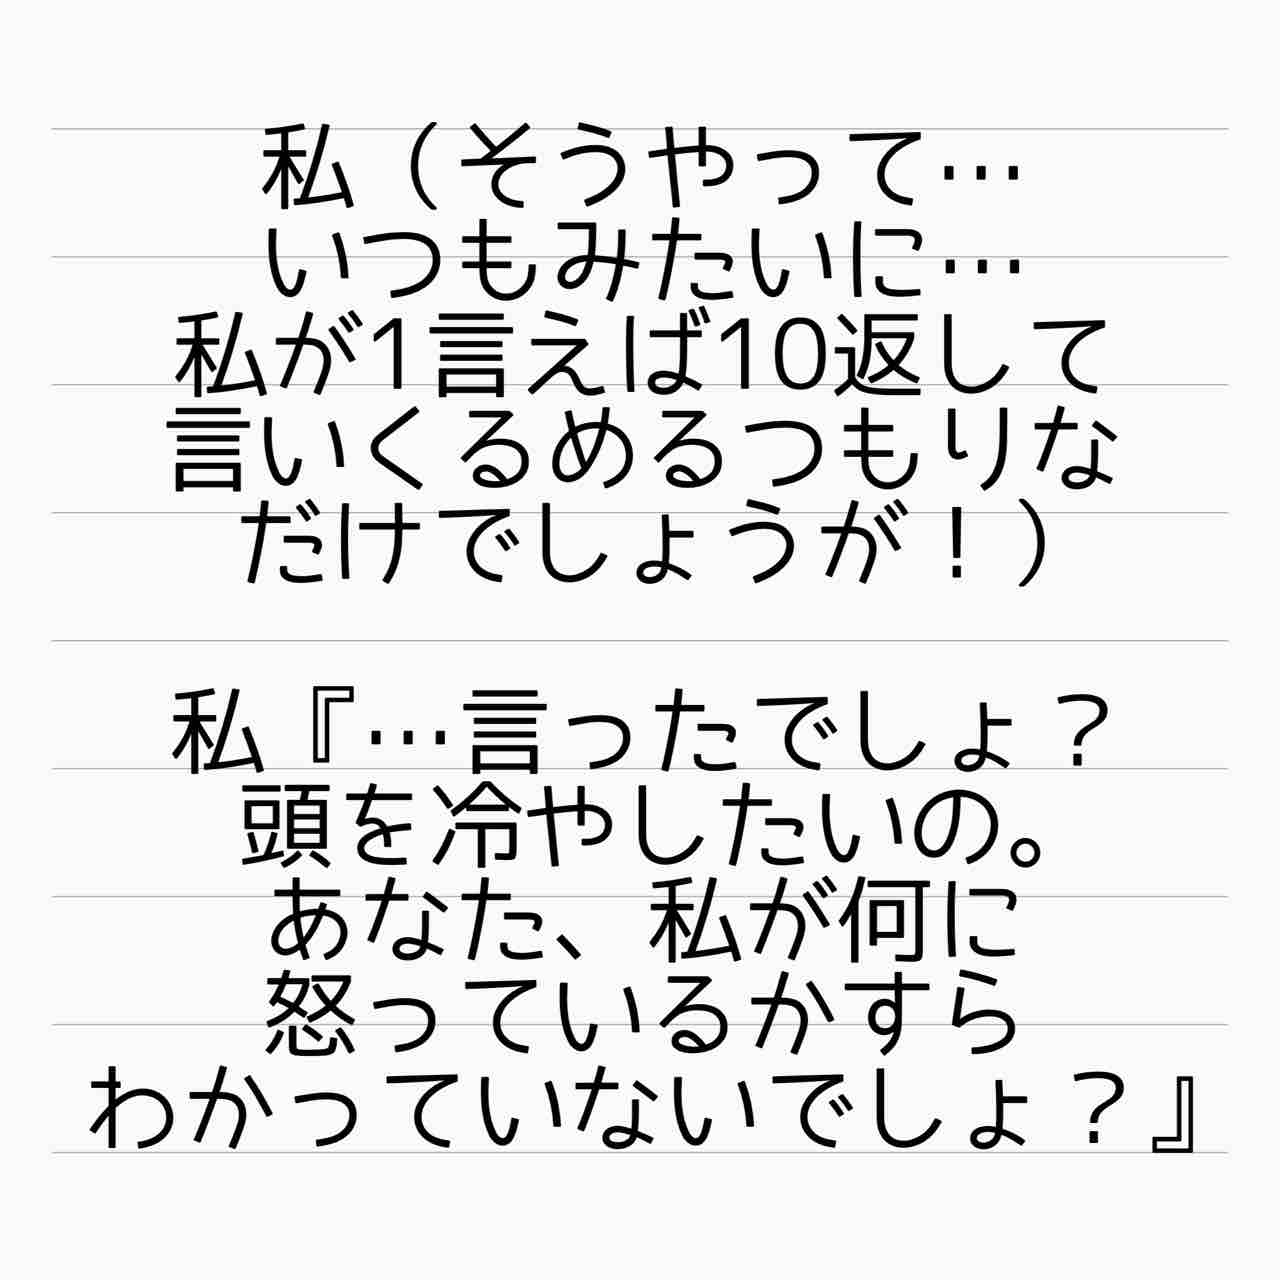 私（そうやって…
いつもみたいに…
私が1言えば10返して
言いくるめるつもりな
だけでしょうが！）
私『…言ったでしょ？
頭を冷やしたいの。
あなた、私が何に
怒っているかすら
わかっていないでしょ？』